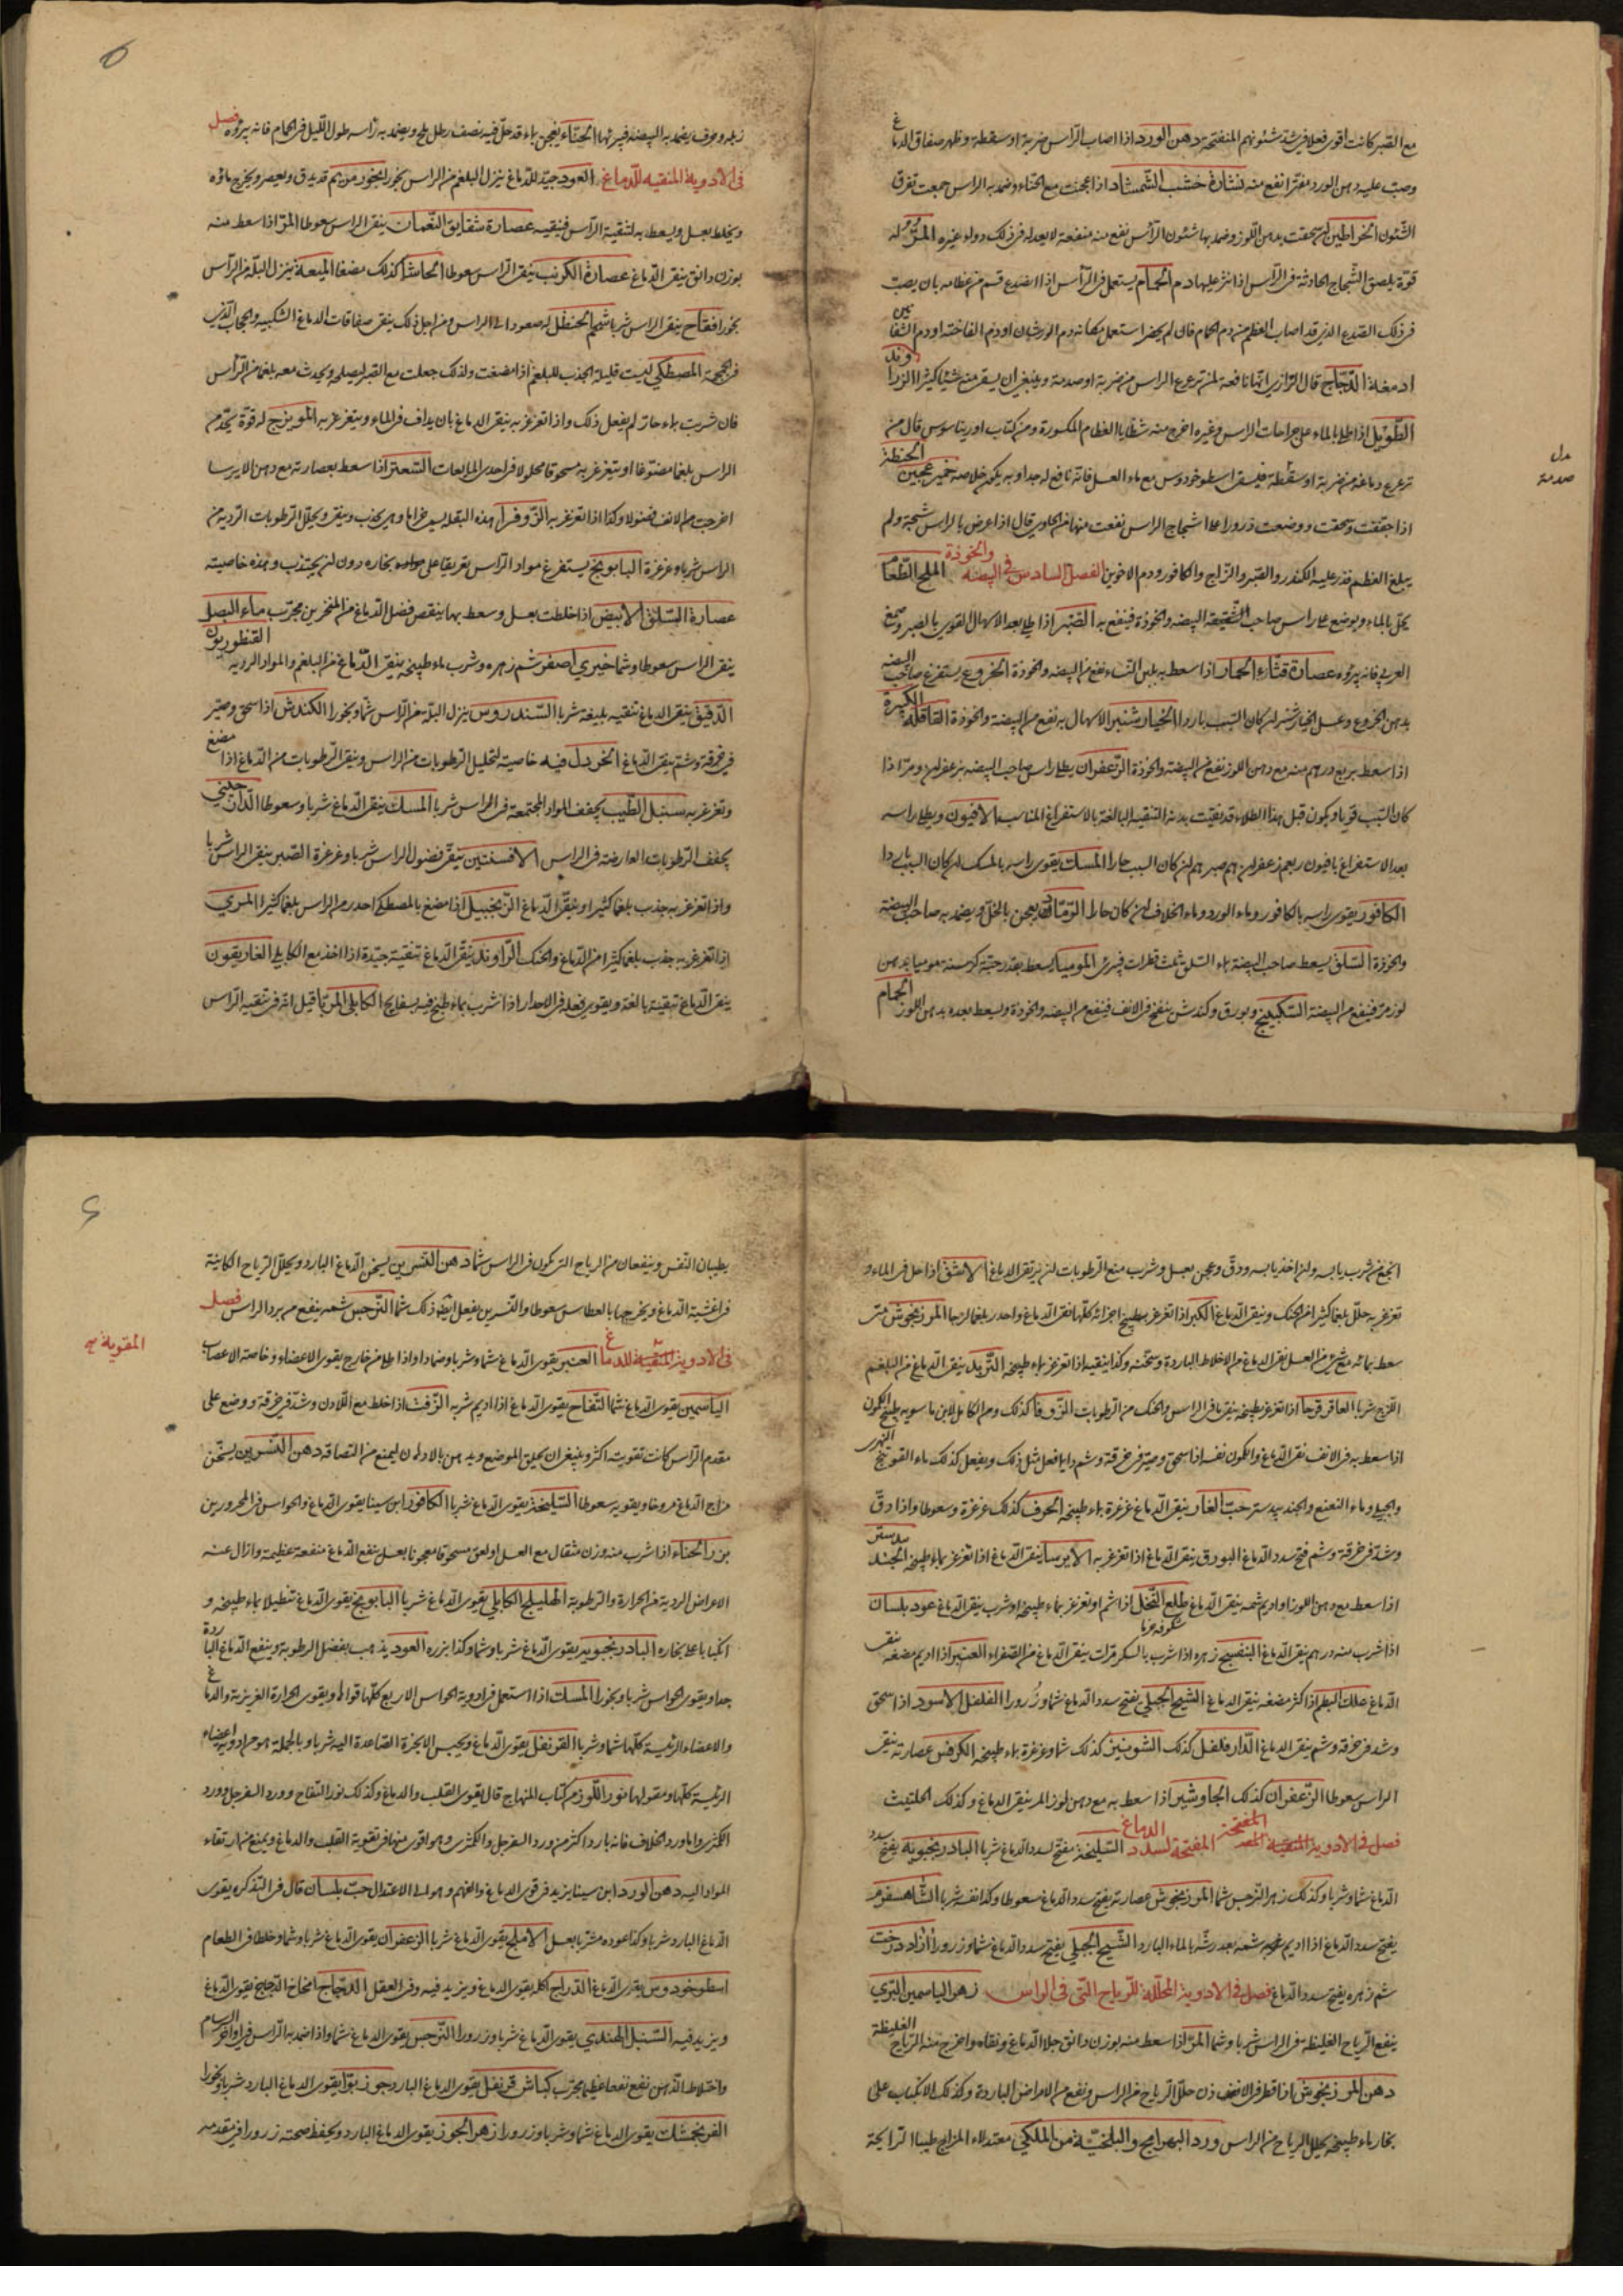 مع الصبر كانت اقوى فعلا في شد شئونهم المنفتحة دهن الورد اذا اصاب الراس ضربة او سقطة وظهر صفاق الدماغ
وصب عليه دهن الورد مفترا نفع منه نشارة خشب الشمشاد اذا عجنت مع الحناء وضمد به الراس جمعت تفرق
الشئون الخراطين ان سحقت بدهن اللوز وضمد بها شئون الراس نفع منه منفعة لا يعدله في ذلك دواء غيره المر له
قوة يلصق الشجاج الحادثة في الراس اذا نثر عليها دم الحمام يستعمل في الراس اذا انصدع قسم من عظامه بان يصب
في ذلك الصدع الذي قد اصاب العظم من دم الحمام فان لم يحضر استعمل مكانه دم الورشان او دم الفاختة او دم الشفانين
ادمغة الدجاج قال الرازي انها نافعة لمن ترعرع الراس من ضربة او صدمة وينبغي ان يسقى منه شيئا كثيرا الزراوند
الطويل اذا طلي بالماء على جراحات الراس وغيره اخرج منه شظايا العظام المكسورة ومن كتاب اوريباسوس قال من
ترعرع دماغه من ضربة او سقطة فليسق اسطوخودوس مع ماء العسل فانه نافع له جدا وبه يكون خلاصه خمير عجين الحنطة
مدل
صدمة
اذا جففت وسحقت ووضعت ذرورا على شجاج الراس نفعت منها من الحاوي قال اذا عرض بالراس شجة ولم
يبلغ العظم فذر عليه الكندر والصبر والزاج والكافور ودم الاخوين الفصل السادس في البيضه والخوذة الملح الطعام
يحل بالماء ويوضع على راس صاحب الشقيقة البيضه والخوذة فينفع به الصبر اذا طلي بعد الاسهال القوي بالصبر وصمغ
العربي فانه يبرؤه عصارة قثاء الحمار اذا سعط به بلبن النساء نفع من البيضه والخوذة الخروع يستفرغ صاحب البيضه
بدهن الخروع وعسل الخيارشنبر ان كان السبب باردا الخيارشنبر الاسهال به نفع من البيضة والخوذة القاقلة الكبيرة
اذا سعط بربع درهم منه مع دهن اللوز نفع من البيضة والخوذة الزعفران يطلى راس صاحب البيضه بزعفران ومر اذا
كان السبب قويا ويكون قبل هذا الطلاء قد نقيت بدنه التنقية البالغة بالاستفراغ المناسب الافيون ويطلى راسه
بعد الاستفراغ بافيون ربع درهم زعفران صبر ان كان السبب حارا المسك يقوى راسه بالمسك ان كان السبب باردا
الكافور يقوى راسه بالكافور وماء الورد وماء الخلاف ان كان حارا الرماد يعجن بالخل ويضمد به صاحب البيضه
والخوذة السلق يسعط صاحب البيضة بماء السلق ثلث قطرات فيبرئ الموميا يسعط بقدر حبة كرسنة موميا بدهن
لوز مر فينفع من البيضة السكبينج وبورق وكندش ينفخ في الانف فينفع من البيضه والخوذة ويسعط بعده بدهن اللوز الحمام
زبله وحرف يضمد به البيضة فيبرئها الحناء يعجن بماء قد حل فيه نصف رطل ملح ويضمد به راسه طول الليل في الحمام فانه يبرؤه فصل
في الادوية المنقيه للدماغ العود جيد للدماغ ينزل البلغم من الراس بخورا بخور مريم قد يدق ويعصر ويخرج ماؤه
ويخلط بعسل ويسعط به لتنقية الراس فينقيه عصارة شقايق النعمان ينقى الراس سعوطا المر اذا سعط منه
بوزن دانق ينقى الدماغ عصارة الكرنب ينقى الراس سعوطا الحاشا كذلك مضغا الميعة ينزل البلة من الراس
بخورا فقاح ينقى الراس شربا شحم الحنظل له صعود الى الراس ومن اجل ذلك ينقى صفاقات الدماغ الشبكية والحجاب الذي
في الجمجمة المصطكي ليست قليلة الجذب للبلغم اذا مضغت ولذلك جعلت مع الصبر ليصلحه ويحدث معه بلغما من الراس
فان شربت بماء حار لم يفعل ذلك واذا تغرغر به ينقى الدماغ بان يداف في الماء ويتغرغر به المويزج له قوة يخرج من
الراس بلغما مضوغا او يتغرغر به مسحوقا محلولا في احدى المايعات السعتر اذا سعط بعصارته مع دهن الايرسا
اخرجت من الانف فضولا وكذا اذا تغرغر به الزوفرا هذه البقلة يسير غراما وهي يجذب وينقى ويحلل الرطوبات الردية من
الراس شربا وغرغرة البابونج يستفرغ مواد الراس تعريقا على بخاره دون ان يجتذب وهذه خاصيته
عصارة السلق الابيض اذا خلطت بعسل وسعط بها ينقص فضل الدماغ من المنخرين مجرب ماء البصل
ينقى الراس سعوطا وشما خيري اصفر شم زهره وشرب ماء طبيخه ينقى الدماغ من البلغم والمواد الرديه القنطوريون
الدقيق ينقى الدماغ تنقيه بليغة شربا السندروس ينزل البلة من الراس شما وبخورا الكندش اذا سحق وصير
في خرقة وشم ينقى الدماغ الخردل فيه خاصية لتحليل الرطوبات من الراس وينقى الرطوبات من الدماغ اذا مضغ
وتغرغر به سنبل الطيب يجفف المواد المجتمعة في الراس شربا المسك ينقى الدماغ شربا وسعوطا الدارصيني
يجفف الرطوبات العارضة في الراس الافسنتين ينقى فضول الراس شربا وغرغرة الصبر ينقى الراس شربا
واذا تغرغر به جذب بلغما كثيرا وينقى الدماغ الزنجبيل اذا مضغ بالمصطكي احدر من الراس بلغما كثيرا المري
اذا تغرغر به جذب بلغما كثيرا من الدماغ والحنك الراوند ينقى الدماغ تنقية جيدة اذا اخذ مع الكابلي الغاريقون
ينقى الدماغ تنقية بالغة ويقوى فعله في الاحدار اذا شرب بماء طبخ فيه بسفايج الكابلي المربا قيل انه في تنقية الراس
انجع من شرب يابسه وان اخذ يابسه ودق وعجن بعسل وشرب منع الرطوبات ان يرتقى الدماغ الاشق اذا حل في الماء و
تغرغر به حلل بلغما كثيرا من الحنك وينقى الدماغ الكبر اذا تغرغر بطبيخ اجزائه كلها نقى الدماغ واحدر بلغما لزجا المرزنجوش متى
سعط بمائه مع شيء من العسل نقى الدماغ من الاخلاط الباردة وسخنه وكذا ينقيه اذا تغرغر بماء طبيخه التربد ينقى الدماغ من البلغم
اللزج شربا العاقرقرحا اذا تغرغر بطبيخه نقى ما في الراس والحنك من الرطوبات الزوفا كذلك ومن الكامل لابن ماسويه طبيخ الكمون
اذا سعط به في الانف نقى الدماغ والكمون نفسه اذا سحق وصير في خرقة وشم دايما فعل مثل ذلك ويفعل كذلك ماء الفوتنج النهري
والجبلي وماء النعنع والجندبيدستر حب الغار ينقى الدماغ غرغرة بماء طبيخه الحرف كذلك غرغرة وسعوطا واذا دق
وشد في خرقة وشم فتح سدد الدماغ البورق ينقى الدماغ اذا تغرغر به الايرسا ينقى الدماغ اذا تغرغر بماء طبيخه الجندبيدستر
اذا سعط مع دهن اللوز او اديم شمه ينقى الدماغ طلع النخل اذا شم او تغرغر بماء طبيخه او شرب ينقى الدماغ عود بلسان
شكوفه خرما
اذا شرب منه درهم ينقى الدماغ البنفسج زهره اذا شرب بالسكر مرات ينقى الدماغ من الصفراء العنبر اذا اديم مضغه ينقى
الدماغ علك البطم اذا كثر مضغه ينقى الدماغ الشيح الجبلي يفتح سدد الدماغ شما وذرورا الفلفل الاسود اذا سحق
وشد في خرقه وشم ينقى الدماغ الدار فلفل كذلك الشونيز كذلك شما وغرغرة بماء طبيخه الكرفس عصارته ينقى
الراس سعوطا الزعفران كذلك الجاوشير اذا سعط به مع دهن لوز المر ينقى الدماغ وكذلك الحلتيت
فصل في الادوية المفتحة لسدد الدماغ السليخة مفتح لسدد الدماغ شربا البادرنجبويه يفتح سدد
الدماغ شما وشربا وكذلك زهر النرجس شما المرزنجوش عصارته يفتح سدد الدماغ سعوطا وكذا نفسه شربا الشاهسفرم
يفتح سدد الدماغ اذا اديم شمه بعد رشه بالماء البارد الشيح الجبلي يفتح سدد الدماغ شما وذرورا ازاد درخت
شم زهره يفتح سدد الدماغ فصل في الادوية المحللة للرياح التي في الراس زهر الياسمين البري
ينفع الرياح الغليظه في الراس شربا وشما المر اذا سعط منه بوزن دانق جلا الدماغ ونقاه واخرج منه الرياح الغليظة
دهن المرزنجوش اذا قطر في الاذن حلل الرياح من الراس ونفع من الامراض الباردة وكذلك الانكباب على
بخار ماء طبيخه يحلل الرياح من الراس ورد البهرامج والبلخية من الملكي معتدلا المزاج طيبا الرايحة
يطيبان النفس وينفعان من الرياح التي تكون في الراس شما دهن النسرين يسخن الدماغ البارد ويحلل الرياح الكاينة
في اغشية الدماغ ويخرجها بالعطاس سعوطا والنسرين يفعل ايضا ذلك شما النرجس شمه ينفع من برد الراس فصل
في الادوية المنقية للدماغ العنبر يقوى الدماغ شما وشربا وضمادا واذا طلي من خارج يقوى الاعضاء وخاصة الاعصاب
المقوية صح
الياسمين يقوى الدماغ شما التفاح يقوى الدماغ اذا اديم شمه الزفت اذا خلط مع اللادن وشد في خرقة ووضع على
مقدم الراس كانت تقويته اكثر وينبغي ان يحلق الموضع ويدهن بالادهان ليمنع من التصاقه دهن النسرين يسخن
مزاج الدماغ مروخا ويقويه سعوطا السليخة يقوى الدماغ شربا الكافور ابن سينا يقوى الدماغ والحواس في المحرورين
بزر الحناء اذا شرب منه وزن مثقال مع العسل او لعق مسحوقا معجونا بعسل ينفع الدماغ منفعة عظيمة وازال عنه
الاعراض الردية من الحرارة والرطوبة الهليلج الكابلي يقوى الدماغ شربا البابونج يقوى الدماغ تنطيلا بماء طبيخه و
انكبابا على بخاره البادرنجبويه يقوى الدماغ شربا وشما وكذا بزره العود يذهب بفضل الرطوبة وينفع الدماغ الباردة
جدا ويقوى الحواس شربا وبخورا المسك اذا استعمل في ادوية الحواس الاربع كلها قواها ويقوى الحرارة الغريزية والدماغ
والاعضاء الرئيسة كلها شما وشربا القرنفل يقوى الدماغ ويحبس الابخرة الصاعدة اليه شربا وبالجملة هو من ادوية اعضاء
الرئيسة كلها ومقو لها نور اللوز من كتاب المنهاج قال يقوى القلب والدماغ وكذلك نور التفاح وورد السفرجل وورد
الكمثرى واما ورد الخلاف فانه بارد اكثر من ورد السفرجل والكمثرى وهو اقوى منها في تقوية القلب والدماغ ويمنع من ارتقاء
المواد اليه دهن الورد ابن سينا يزيد في قوى الدماغ والفهم وهو الى الاعتدال حب بلسان قال في التذكره يقوى
الدماغ البارد شربا وكذا عوده مشربا بعسل الاملج يقوى الدماغ شربا الزعفران يقوى الدماغ شربا وشما وخلطا في الطعام
اسطوخودوس يقوى الدماغ الدراج اكله يقوى الدماغ ويزيد فيه وفي العقل الدجاج امخاخ الدجاج يقوى الدماغ
ويزيد فيه السنبل الهندي يقوى الدماغ شربا وذرورا النرجس يقوى الدماغ شما واذا ضمد به الراس في اواخر السرسام
واختلاط الذهن نفع نفعا عظيما مجرب كباش قرنفل يقوى الدماغ البارد جوز بوا يقوى الدماغ البارد شربا وبخورا
الفرنجمشك يقوى الدماغ شما وشربا وذرورا زهر الجوز يقوى الدماغ البارد ويحفظ صحته ذرورا في مقدمه